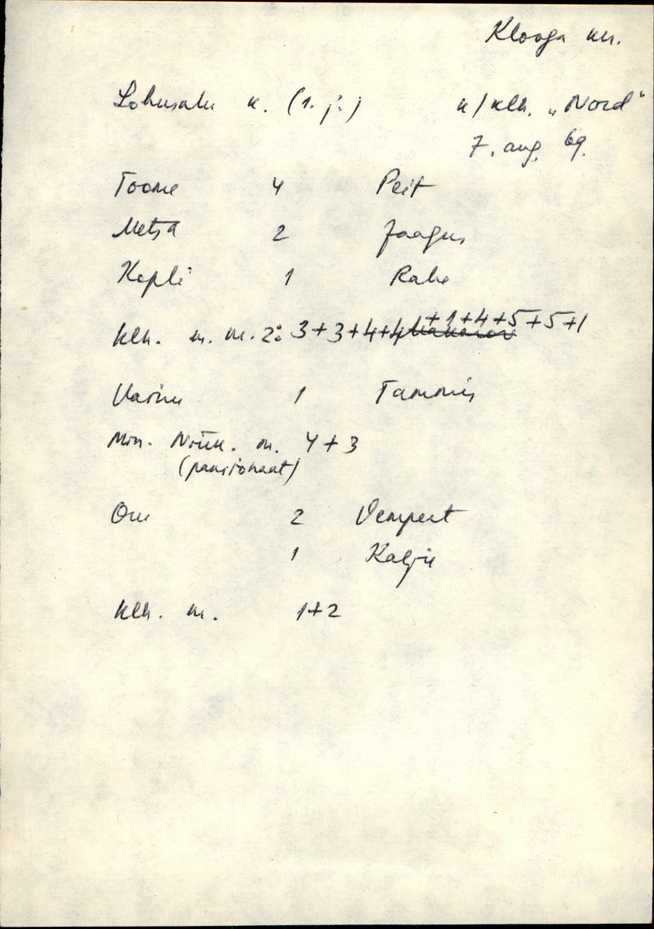 Klooga kn.
Lohusalu k. (1. j.) k/klh. „Nord“
7. aug. 69.
Toome 4 Peit
Metsa 2 Jaagus
Kopli 1 Rahe
klh. m. m. 2: 3+3+4+4+1+4+5+5+1
1 Tammis
Min. Nõuk. m. 4+3
(pansionaat)
Oru 2 Vempert
1 Kalju
klh. m. 1+2